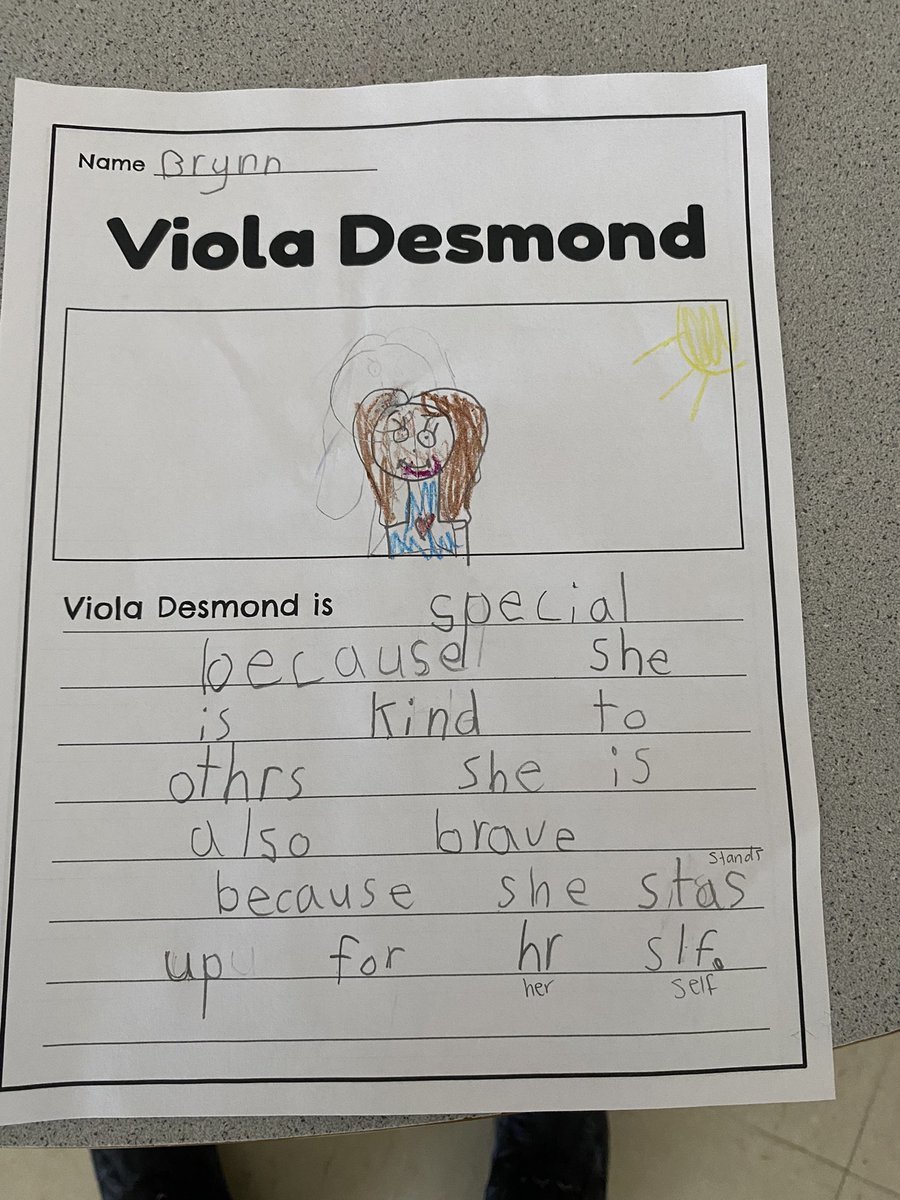 Name Brynn
Viola Desmond
Viola Desmond is special
because she
is kind to
othrs she is
also brave
stands
because she stas
up for hr slf.
her self